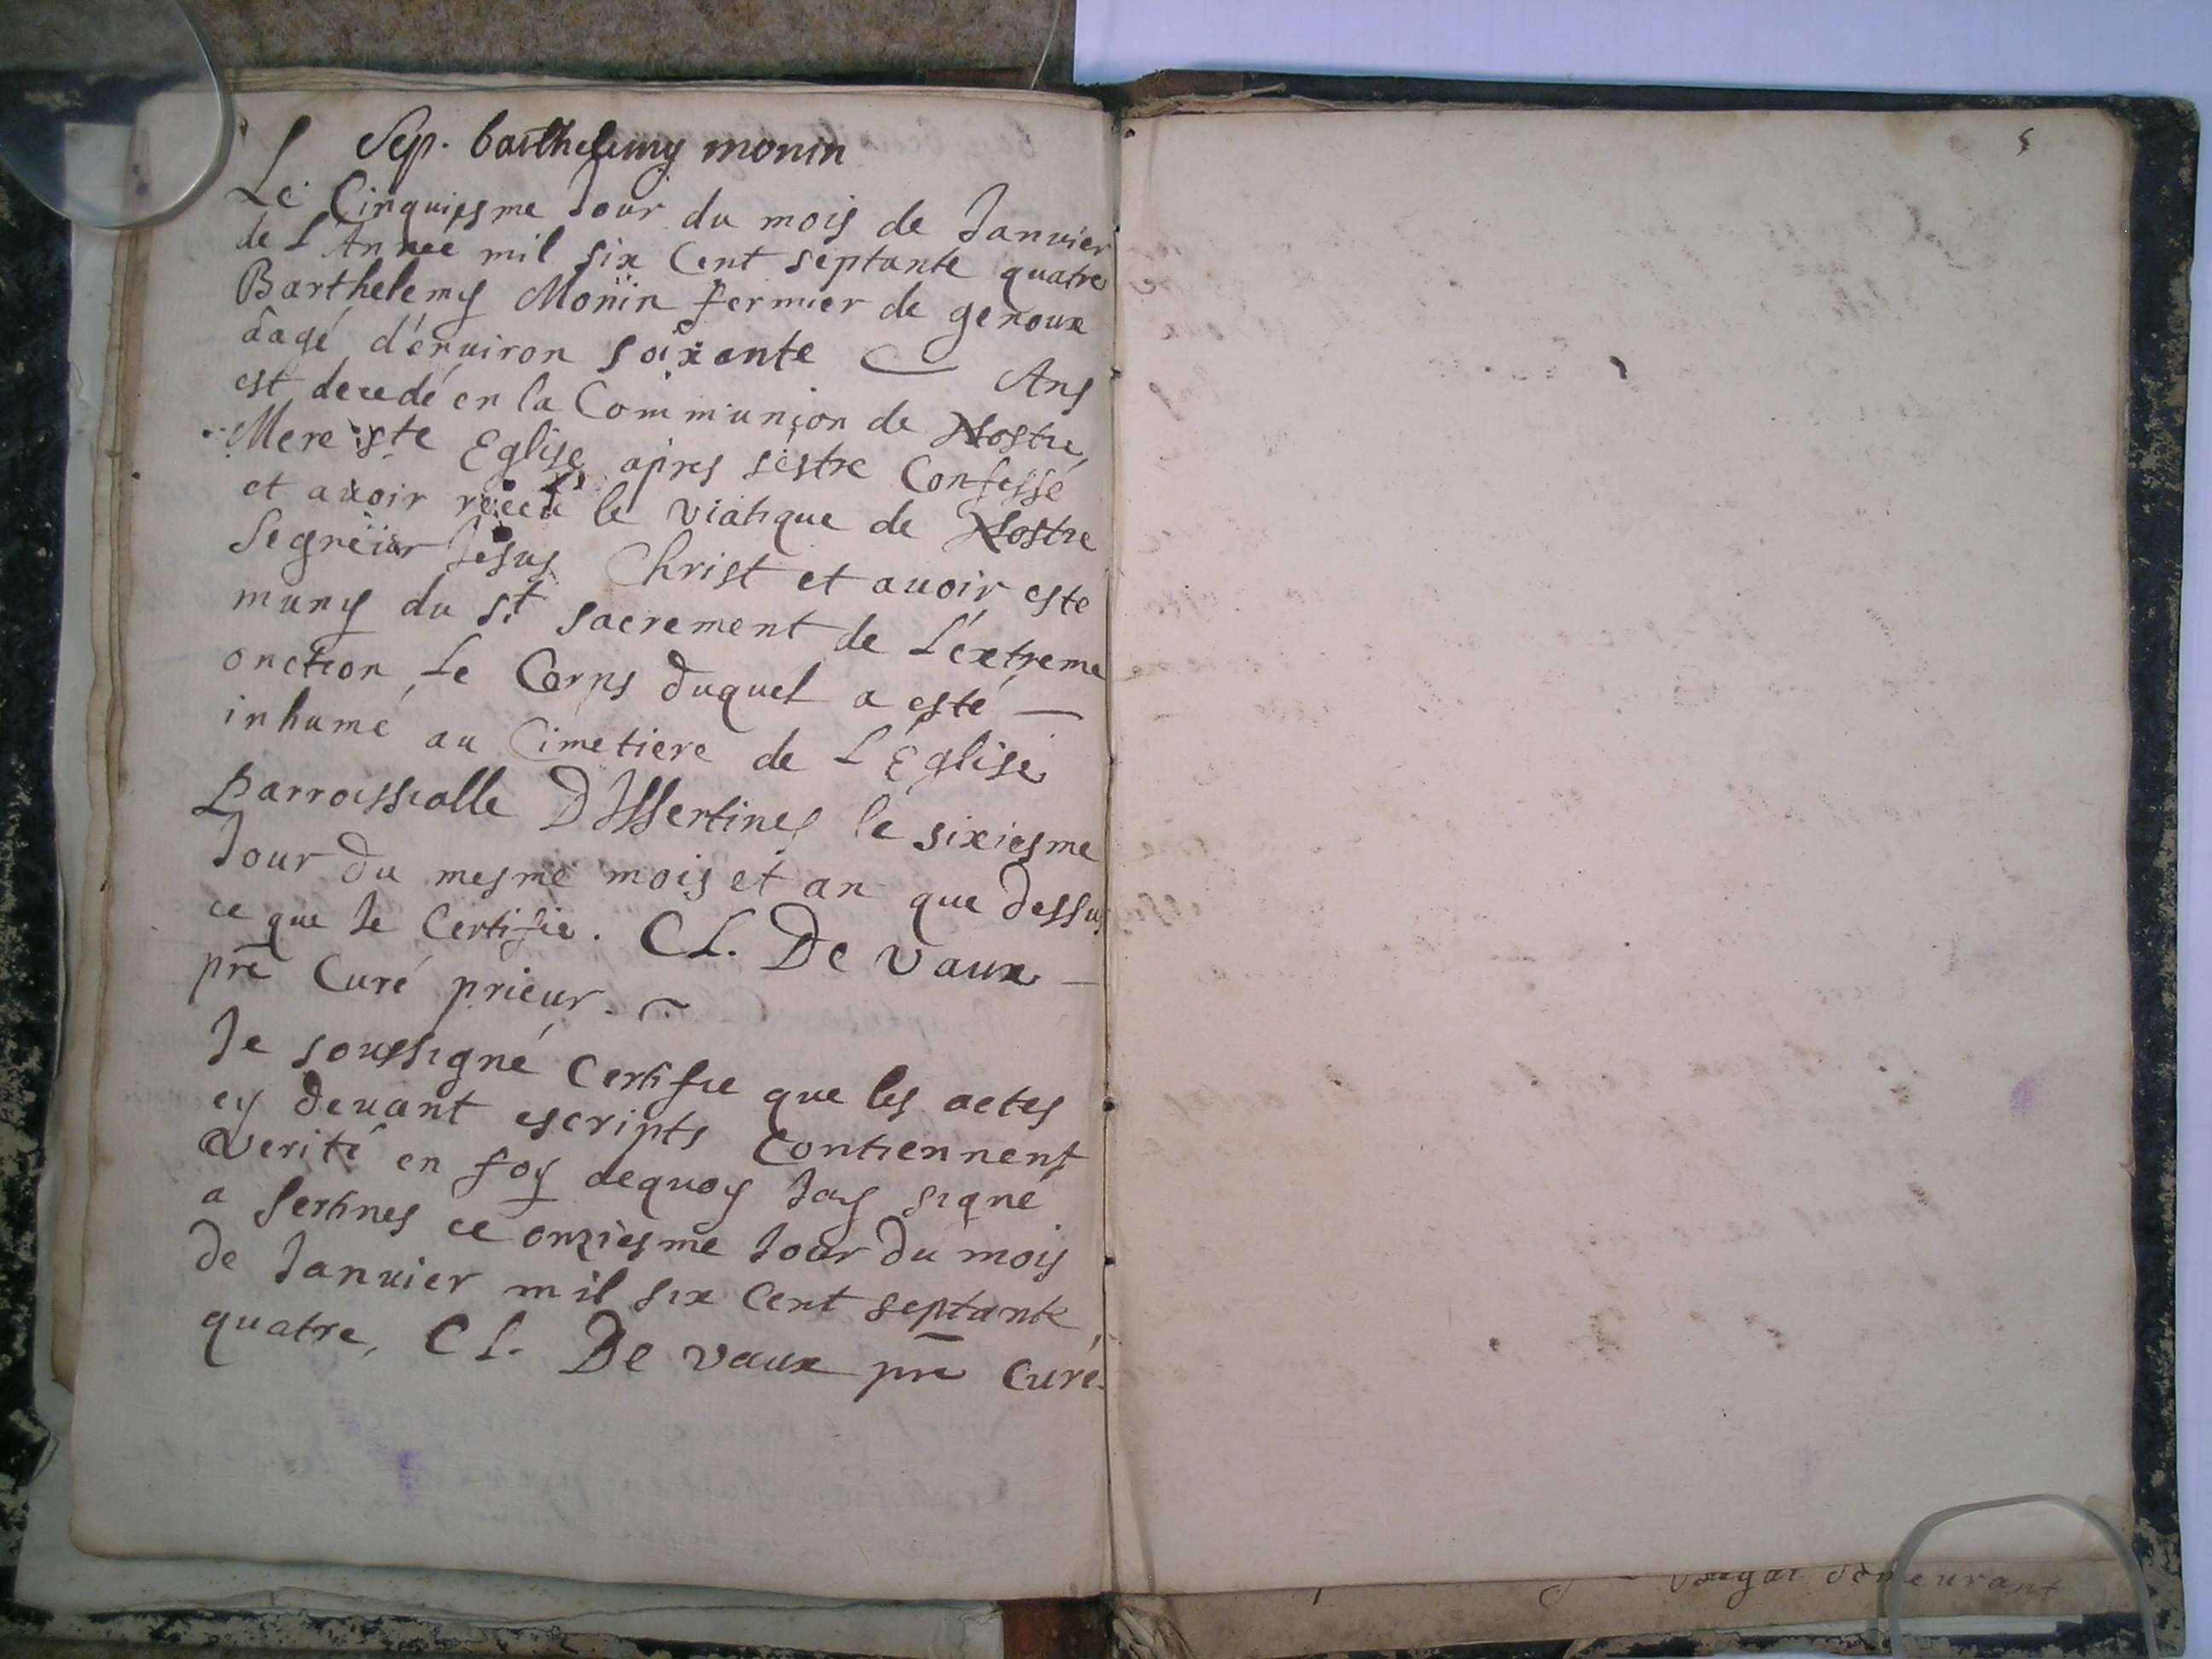 Sep. barthelemy monin
Le Cinquiesme Jour du mois de Januier
de L'Annee mil six Cent septante quatre
Barthelemy Monin fermier de genoux
aagé d'enuiron soixante Ans
est decedé en la Communion de Nostre
Mere ste Eglise apres s'estre Confessé
et auoir receu le viatique de Nostre
Segneur Jesus Christ et auoir este
muny du st sacrement de L'extreme
onction Le Corps duquel a esté —
inhumé au Cimetiere de L'Eglise
Parroissialle D'Issertines le sixiesme
Jour du mesme mois et an que dessus
ce que Je Certifie. Cl. De vaux —
pre Curé prieur.
Je soussigné Certifie que les actes
cy deuant escripts Contiennent
verité en foy dequoy Jay signé
a Sertines ce onziesme Jour du mois
de Januier mil six Cent septante
quatre, Cl. De vaux pre Curé.
demeurant